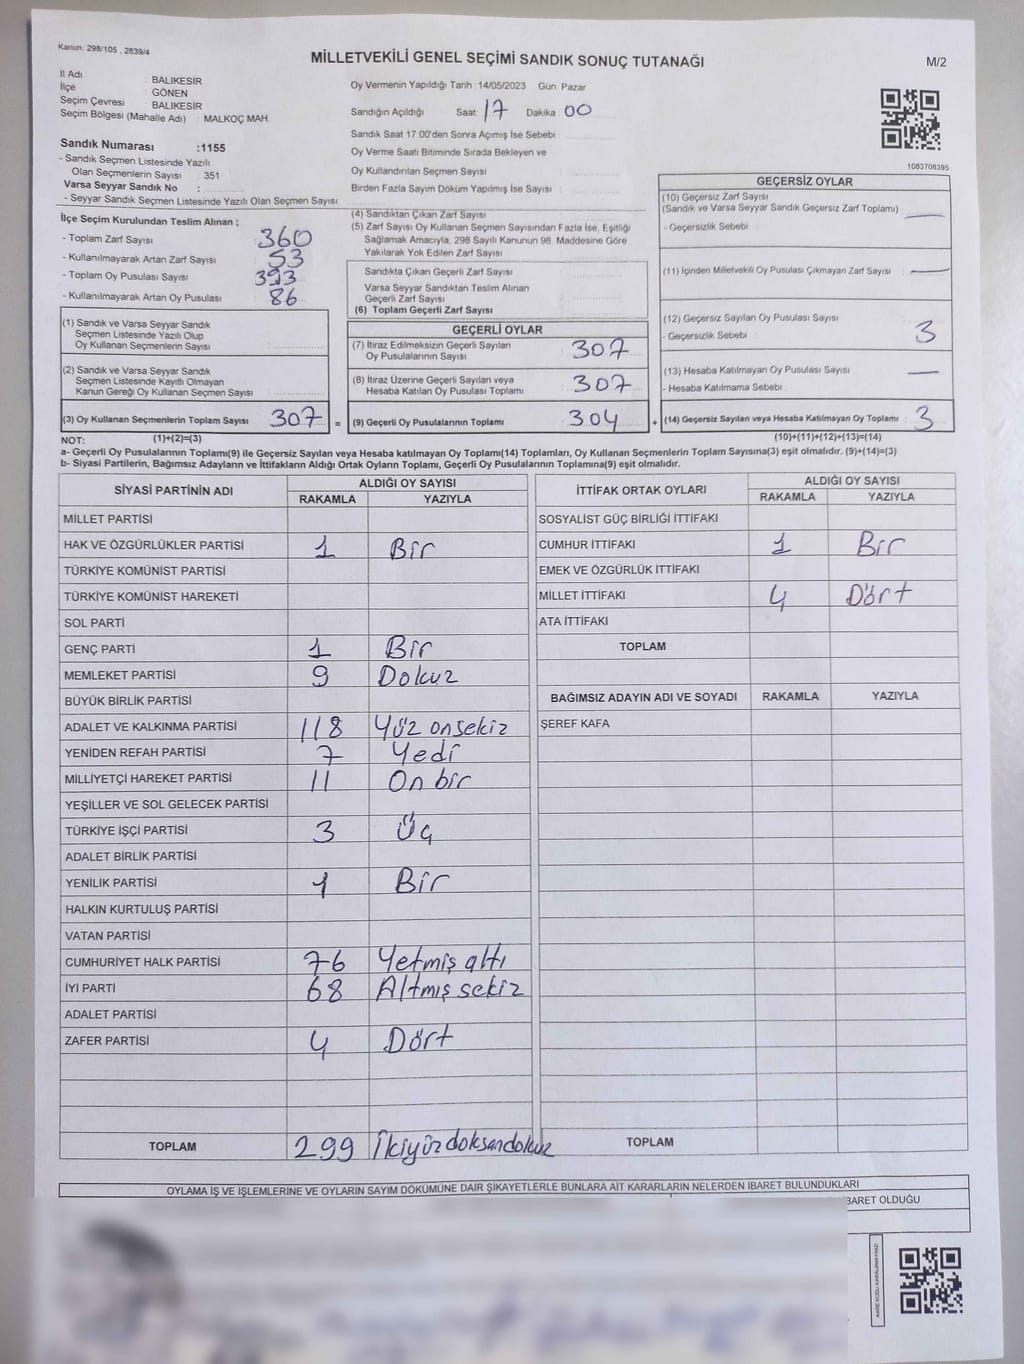 Kanun: 298/105 , 2839/4
MİLLETVEKİLİ GENEL SEÇİMİ SANDIK SONUÇ TUTANAĞI
M/2
İl Adı : BALIKESİR
İlçe : GÖNEN
Seçim Çevresi : BALIKESİR
Seçim Bölgesi (Mahalle Adı) : MALKOÇ MAH.
Sandık Numarası :1155
- Sandık Seçmen Listesinde Yazılı
Olan Seçmenlerin Sayısı : 351
Varsa Seyyar Sandık No :
- Seyyar Sandık Seçmen Listesinde Yazılı Olan Seçmen Sayısı:
Oy Vermenin Yapıldığı Tarih :14/05/2023 Gün: Pazar
Sandığın Açıldığı Saat: 17 Dakika: 00
Sandık Saat 17:00'den Sonra Açımış İse Sebebi :
Oy Verme Saati Bitiminde Sırada Bekleyen ve
Oy Kullandırılan Seçmen Sayısı :
Birden Fazla Sayım Döküm Yapılmış İse Sayısı :
1083708395
İlçe Seçim Kurulundan Teslim Alınan ;
- Toplam Zarf Sayısı : 360
- Kullanılmayarak Artan Zarf Sayısı : 53
- Toplam Oy Pusulası Sayısı : 393
- Kullanılmayarak Artan Oy Pusulası : 86
(1) Sandık ve Varsa Seyyar Sandık
Seçmen Listesinde Yazılı Olup
Oy Kullanan Seçmenlerin Sayısı :
(2) Sandık ve Varsa Seyyar Sandık
Seçmen Listesinde Kayıtlı Olmayan
Kanun Gereği Oy Kullanan Seçmen Sayısı :
(3) Oy Kullanan Seçmenlerin Toplam Sayısı : 307
(4) Sandıktan Çıkan Zarf Sayısı :
(5) Zarf Sayısı Oy Kullanan Seçmen Sayısından Fazla İse, Eşitliği
Sağlamak Amacıyla, 298 Sayılı Kanunun 98. Maddesine Göre
Yakılarak Yok Edilen Zarf Sayısı :
Sandıkta Çıkan Geçerli Zarf Sayısı :
Varsa Seyyar Sandıktan Teslim Alınan
Geçerli Zarf Sayısı :
(6) Toplam Geçerli Zarf Sayısı :
GEÇERLİ OYLAR
(7) İtiraz Edilmeksizin Geçerli Sayılan
Oy Pusulalarının Sayısı : 307
(8) İtiraz Üzerine Geçerli Sayılan veya
Hesaba Katılan Oy Pusulası Toplamı : 307
= (9) Geçerli Oy Pusulalarının Toplamı : 304
GEÇERSİZ OYLAR
(10) Geçersiz Zarf Sayısı
(Sandık ve Varsa Seyyar Sandık Geçersiz Zarf Toplamı) : —
- Geçersizlik Sebebi :
(11) İçinden Milletvekili Oy Pusulası Çıkmayan Zarf Sayısı : —
(12) Geçersiz Sayılan Oy Pusulası Sayısı :
- Geçersizlik Sebebi : 3
(13) Hesaba Katılmayan Oy Pusulası Sayısı : —
- Hesaba Katılmama Sebebi :
+ (14) Geçersiz Sayılan veya Hesaba Katılmayan Oy Toplamı : 3
NOT: (1)+(2)=(3) (10)+(11)+(12)+(13)=(14)
a- Geçerli Oy Pusulalarının Toplamı(9) ile Geçersiz Sayılan veya Hesaba katılmayan Oy Toplamı(14) Toplamları, Oy Kullanan Seçmenlerin Toplam Sayısına(3) eşit olmalıdır. (9)+(14)=(3)
b- Siyasi Partilerin, Bağımsız Adayların ve İttifakların Aldığı Ortak Oyların Toplamı, Geçerli Oy Pusulalarının Toplamına(9) eşit olmalıdır.
SİYASİ PARTİNİN ADI ALDIĞI OY SAYISI
RAKAMLA YAZIYLA
MİLLET PARTİSİ
HAK VE ÖZGÜRLÜKLER PARTİSİ 1 Bir
TÜRKİYE KOMÜNİST PARTİSİ
TÜRKİYE KOMÜNİST HAREKETİ
SOL PARTİ
GENÇ PARTİ 1 Bir
MEMLEKET PARTİSİ 9 Dokuz
BÜYÜK BİRLİK PARTİSİ
ADALET VE KALKINMA PARTİSİ 118 Yüz onsekiz
YENİDEN REFAH PARTİSİ 7 Yedi
MİLLİYETÇİ HAREKET PARTİSİ 11 On bir
YEŞİLLER VE SOL GELECEK PARTİSİ
TÜRKİYE İŞÇİ PARTİSİ 3 Üç
ADALET BİRLİK PARTİSİ
YENİLİK PARTİSİ 1 Bir
HALKIN KURTULUŞ PARTİSİ
VATAN PARTİSİ
CUMHURİYET HALK PARTİSİ 76 Yetmiş altı
İYİ PARTİ 68 Altmış sekiz
ADALET PARTİSİ
ZAFER PARTİSİ 4 Dört
TOPLAM 299 İkiyüzdoksandokuz
İTTİFAK ORTAK OYLARI ALDIĞI OY SAYISI
RAKAMLA YAZIYLA
SOSYALİST GÜÇ BİRLİĞİ İTTİFAKI
CUMHUR İTTİFAKI 1 Bir
EMEK VE ÖZGÜRLÜK İTTİFAKI
MİLLET İTTİFAKI 4 Dört
ATA İTTİFAKI
TOPLAM
BAĞIMSIZ ADAYIN ADI VE SOYADI RAKAMLA YAZIYLA
ŞEREF KAFA
TOPLAM
OYLAMA İŞ VE İŞLEMLERİNE VE OYLARIN SAYIM DÖKÜMÜNE DAİR ŞİKAYETLERLE BUNLARA AİT KARARLARIN NELERDEN İBARET BULUNDUKLARI
BARET OLDUĞU